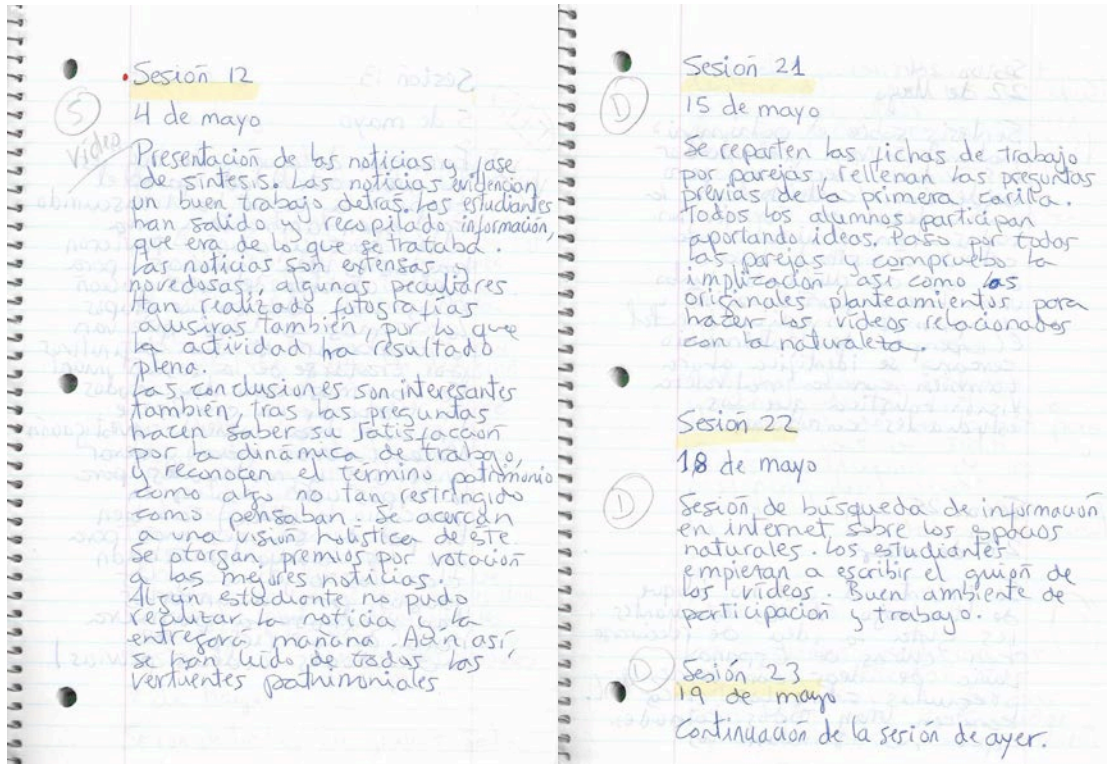 Sesión 12
S
vídeo
4 de mayo
Presentación de las noticias y fase
de síntesis. Las noticias evidencian
un buen trabajo detrás. Los estudiantes
han salido y recopilado información,
que era de lo que se trataba.
Las noticias son extensas,
novedosas, algunas peculiares
Han realizado fotografías
alusivas también, por lo que
la actividad ha resultado
plena.
Las conclusiones son interesantes
también, tras las preguntas
hacen saber su satisfacción
por la dinámica de trabajo,
y reconocen el término patrimonio
como algo no tan restringido
como pensaban. Se acercan
a una visión holística de este
Se otorgan premios por votación
a las mejores noticias.
Algún estudiante no pudo
realizar la noticia y la
entregará mañana. Aún así,
se han leído de todas las
vertientes patrimoniales
Sesión 21
D
15 de mayo
Se reparten las fichas de trabajo
por parejas, rellenan las preguntas
previas de la primera carilla.
Todos los alumnos participan
aportando ideas. Paso por todas
las parejas y compruebo la
implicación así como los
originales planteamientos para
hacer los vídeos relacionados
con la naturaleza.
Sesión 22
18 de mayo
D
Sesión de búsqueda de información
en internet sobre los espacios
naturales. Los estudiantes
empiezan a escribir el guión de
los vídeos. Buen ambiente de
participación y trabajo.
D
Sesión 23
19 de mayo
Continuación de la sesión de ayer.